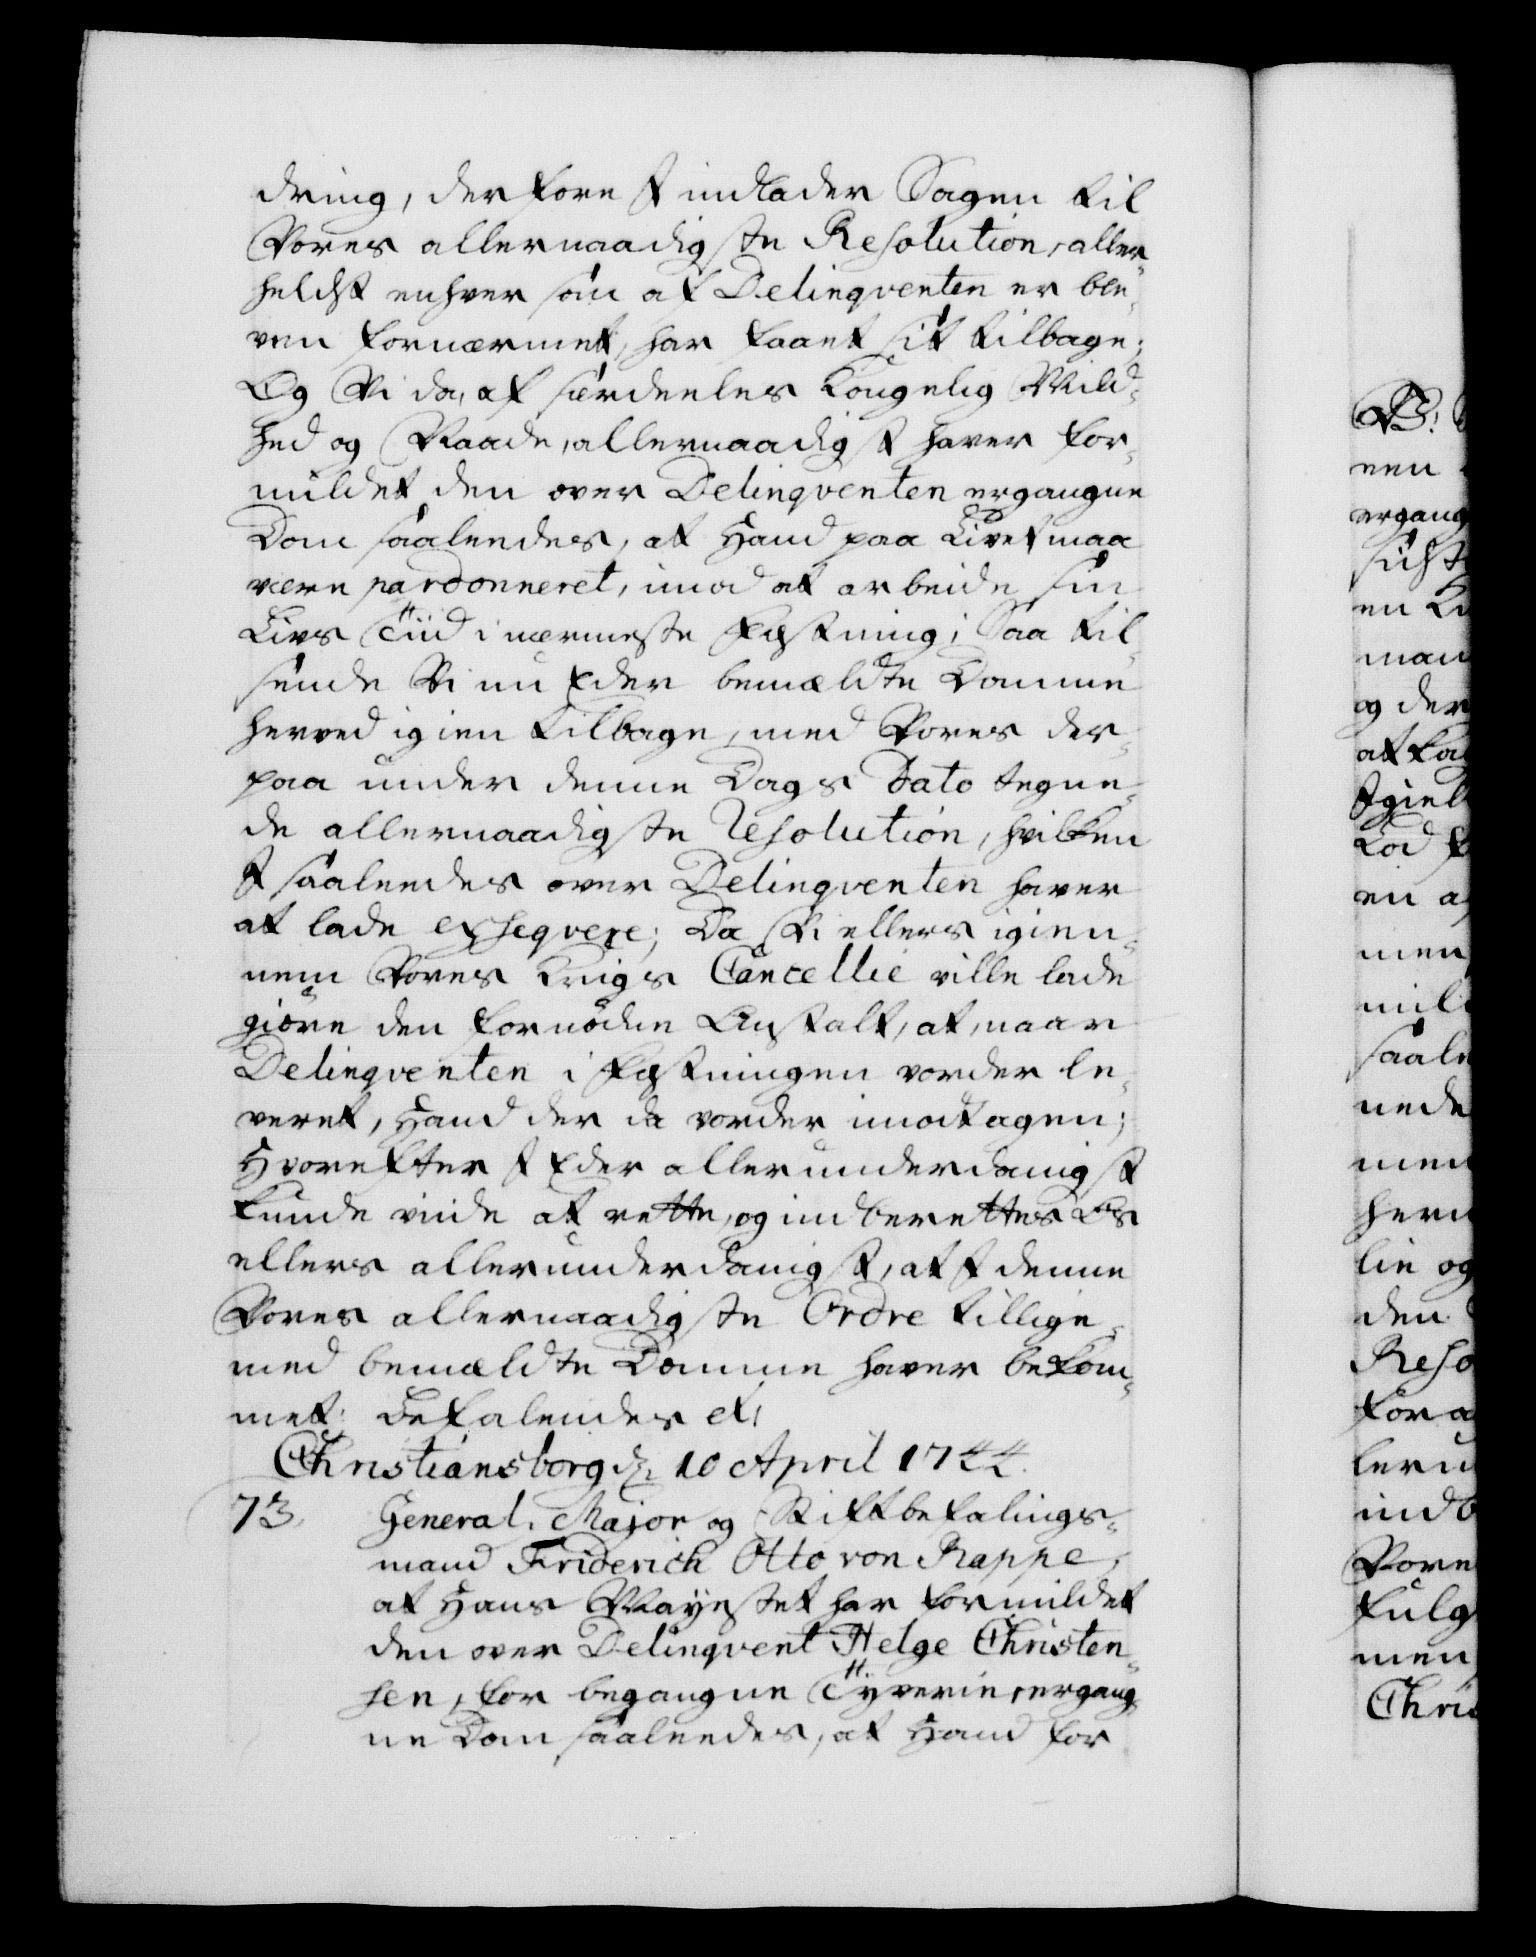 dring, derfore I indlader Sagen til
Vores allernaadigste Resolution, aller-
heldst enhver som af Delinqventen er ble-
ven fornærmet, har faaet sit tilbage;
Og Vi da, af særdeeles Kongelig Mild-
hed og Naade, allernaadigst haver for-
mildet den over Delinqventen ergangne
Dom saaleedes, at Hand paa Livet maa
være pardonneret, imod at arbeide sin
Livs Tiid i nærmeste Fæstning; Saa til-
sende Vi nu Eder bemældte Domme
herved igien tilbage, med Vores der-
paa under denne Dags Dato tegne-
de allernaadigste Resolution, hvilken
I saaleedes over Delinqventen haver
at lade exseqvere; Da Vi ellers igien-
nem Vores Krigs Cancellie ville lade
giøre den fornødne Anstalt, at, naar
Delinqventen i Fæstningen vorder le-
veret, Hand der da vorder imodtagen;
Hvorefter I Eder allerunderdanigst
kunde viide at rette, og indberettes Os
ellers allerunderdanigst, at I denne
Vores allernaadigste Ordre tillige-
med bemældte Domme haver bekom-
met. Befalendes etc
Christiansborg d. 10 April 1744.
73. General-Major og Stiftbefalings-
mand Friderich Otto von Rappe,
at Hans Mayestet har formildet
den over Delinqvent Helge Christen-
sen, for begangne Tyverie, ergang-
ne Dom saaleedes, at Hand for